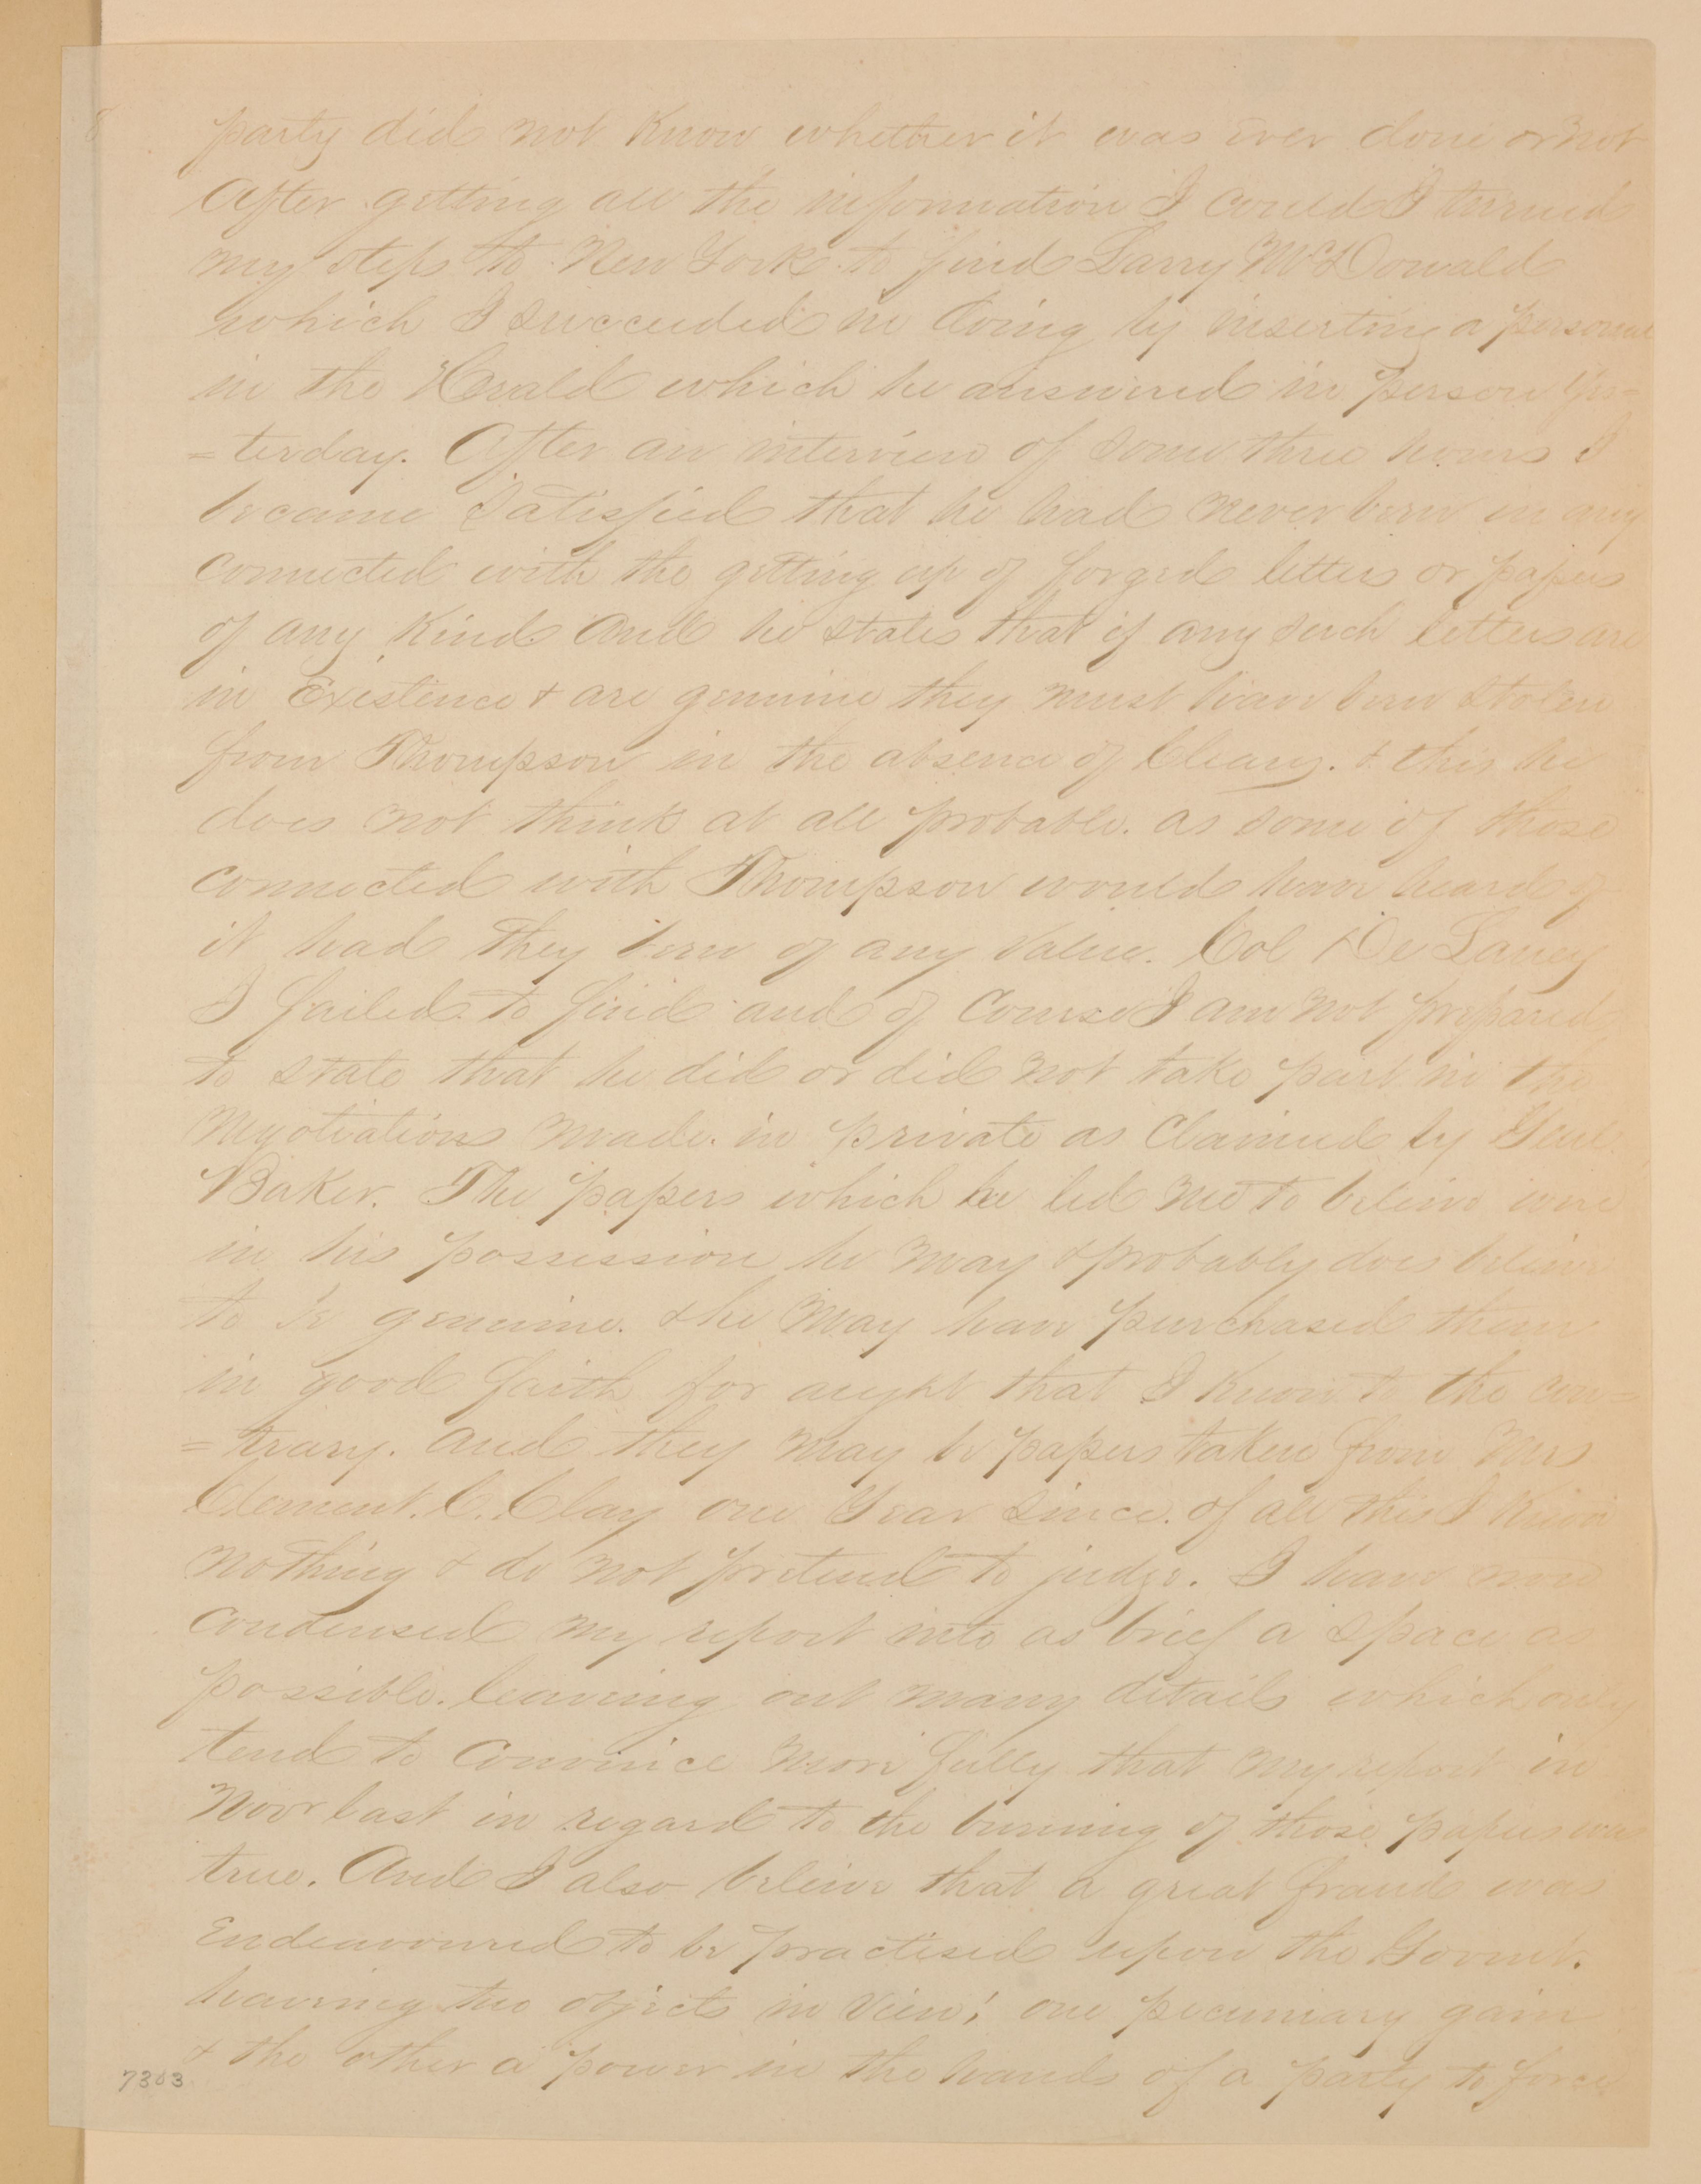 8
party did not know whether it was ever done or not
After getting all the information I could I turned
my steps to New York to find Larry McDonald
which I succeeded in doing by inserting a personal
in the Herald which he answered in person yes-
=terday. After an interview of some three hours I
became satisfied that he had never been in any
connected with the getting up of forged letters or papers
of any Kind and he states that if any such letters are
in Existence & are genuine they must have been stolen
from Thompson in the absence of Cleary. & this he
does not think at all probable. as some of those
connected with Thompson would have heard of
it had they been of any value. Col De Lancy
I failed to find and of course I am not prepared
to state that he did or did not take part in the
negotiations made in private as claimed by Genl
Baker. The papers which he led me to beleive were
in his possession he may & probably does beleive
to be genuine. & he may have purchased them
in good faith for aught that I know to the con=
=trary. and they may be papers taken from Mrs
Clement. C. Clay one Year since. of all this I know
nothing & do not pretend to judge. I have now
condensed my report into as brief a space as
possible. leaving out many details which only
tend to convince more fully that my report in
Novr last in regard to the burning of those papers was
true. And I also beleive that a great fraud was
Endeavoured to be practised upon the Govmt.
having two objects in view; one pecuniary gain
& the other a power in the hands of a party to force
7303